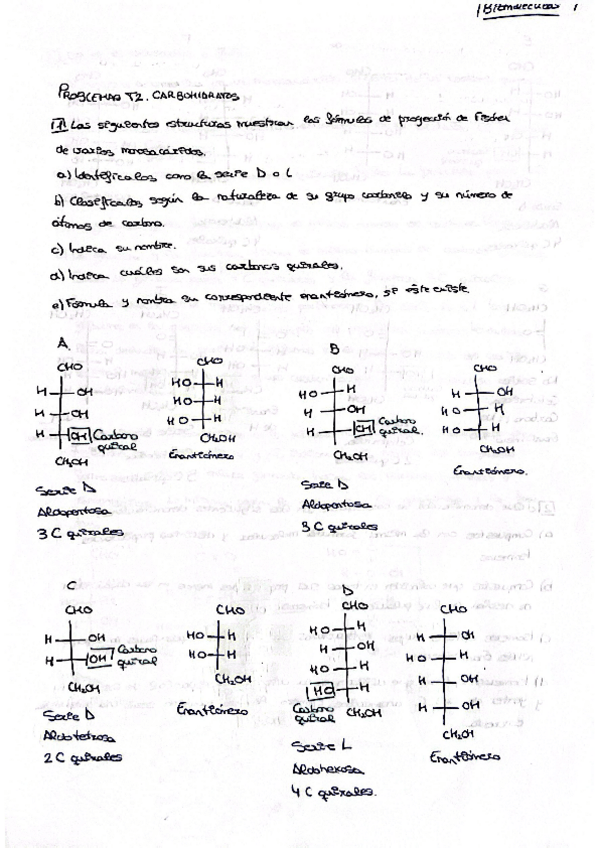 Biomoléculas 1
PROBLEMAS T2. CARBOHIDRATOS
1. Las siguientes estructuras muestran las fórmulas de proyección de Fischer
de varios monosacáridos.
a) Identifícalos como la serie D o L
b) Clasifícalos según la naturaleza de su grupo carbonilo y su número de
átomos de carbono.
c) Indica su nombre.
d) Indica cuáles son sus carbonos quirales.
e) Formula y nombra su correspondiente enantiómero, si éste existe.
A.
CHO
H OH
H OH
H OH Carbono
quiral
CH₂OH
Serie D
Aldopentosa
3 C quirales
CHO
HO H
HO H
HO H
CH₂OH
Enantiómero
B
CHO
HO H
H OH
H OH Carbono
quiral.
CH₂OH
Serie D
Aldopentosa
3 C quirales
CHO
H OH
HO H
HO H
CH₂OH
Enantiómero.
C
CHO
H OH
H OH Carbono
quiral
CH₂OH
Serie D
Aldotetrosa
2 C quirales
CHO
HO H
HO H
CH₂OH
Enantiómero
D
CHO
HO H
H OH
HO H
HO H
Carbono
quiral
CH₂OH
Serie L
Aldohexosa
4 C quirales.
CHO
H OH
HO H
H OH
H OH
CH₂OH
Enantiómero